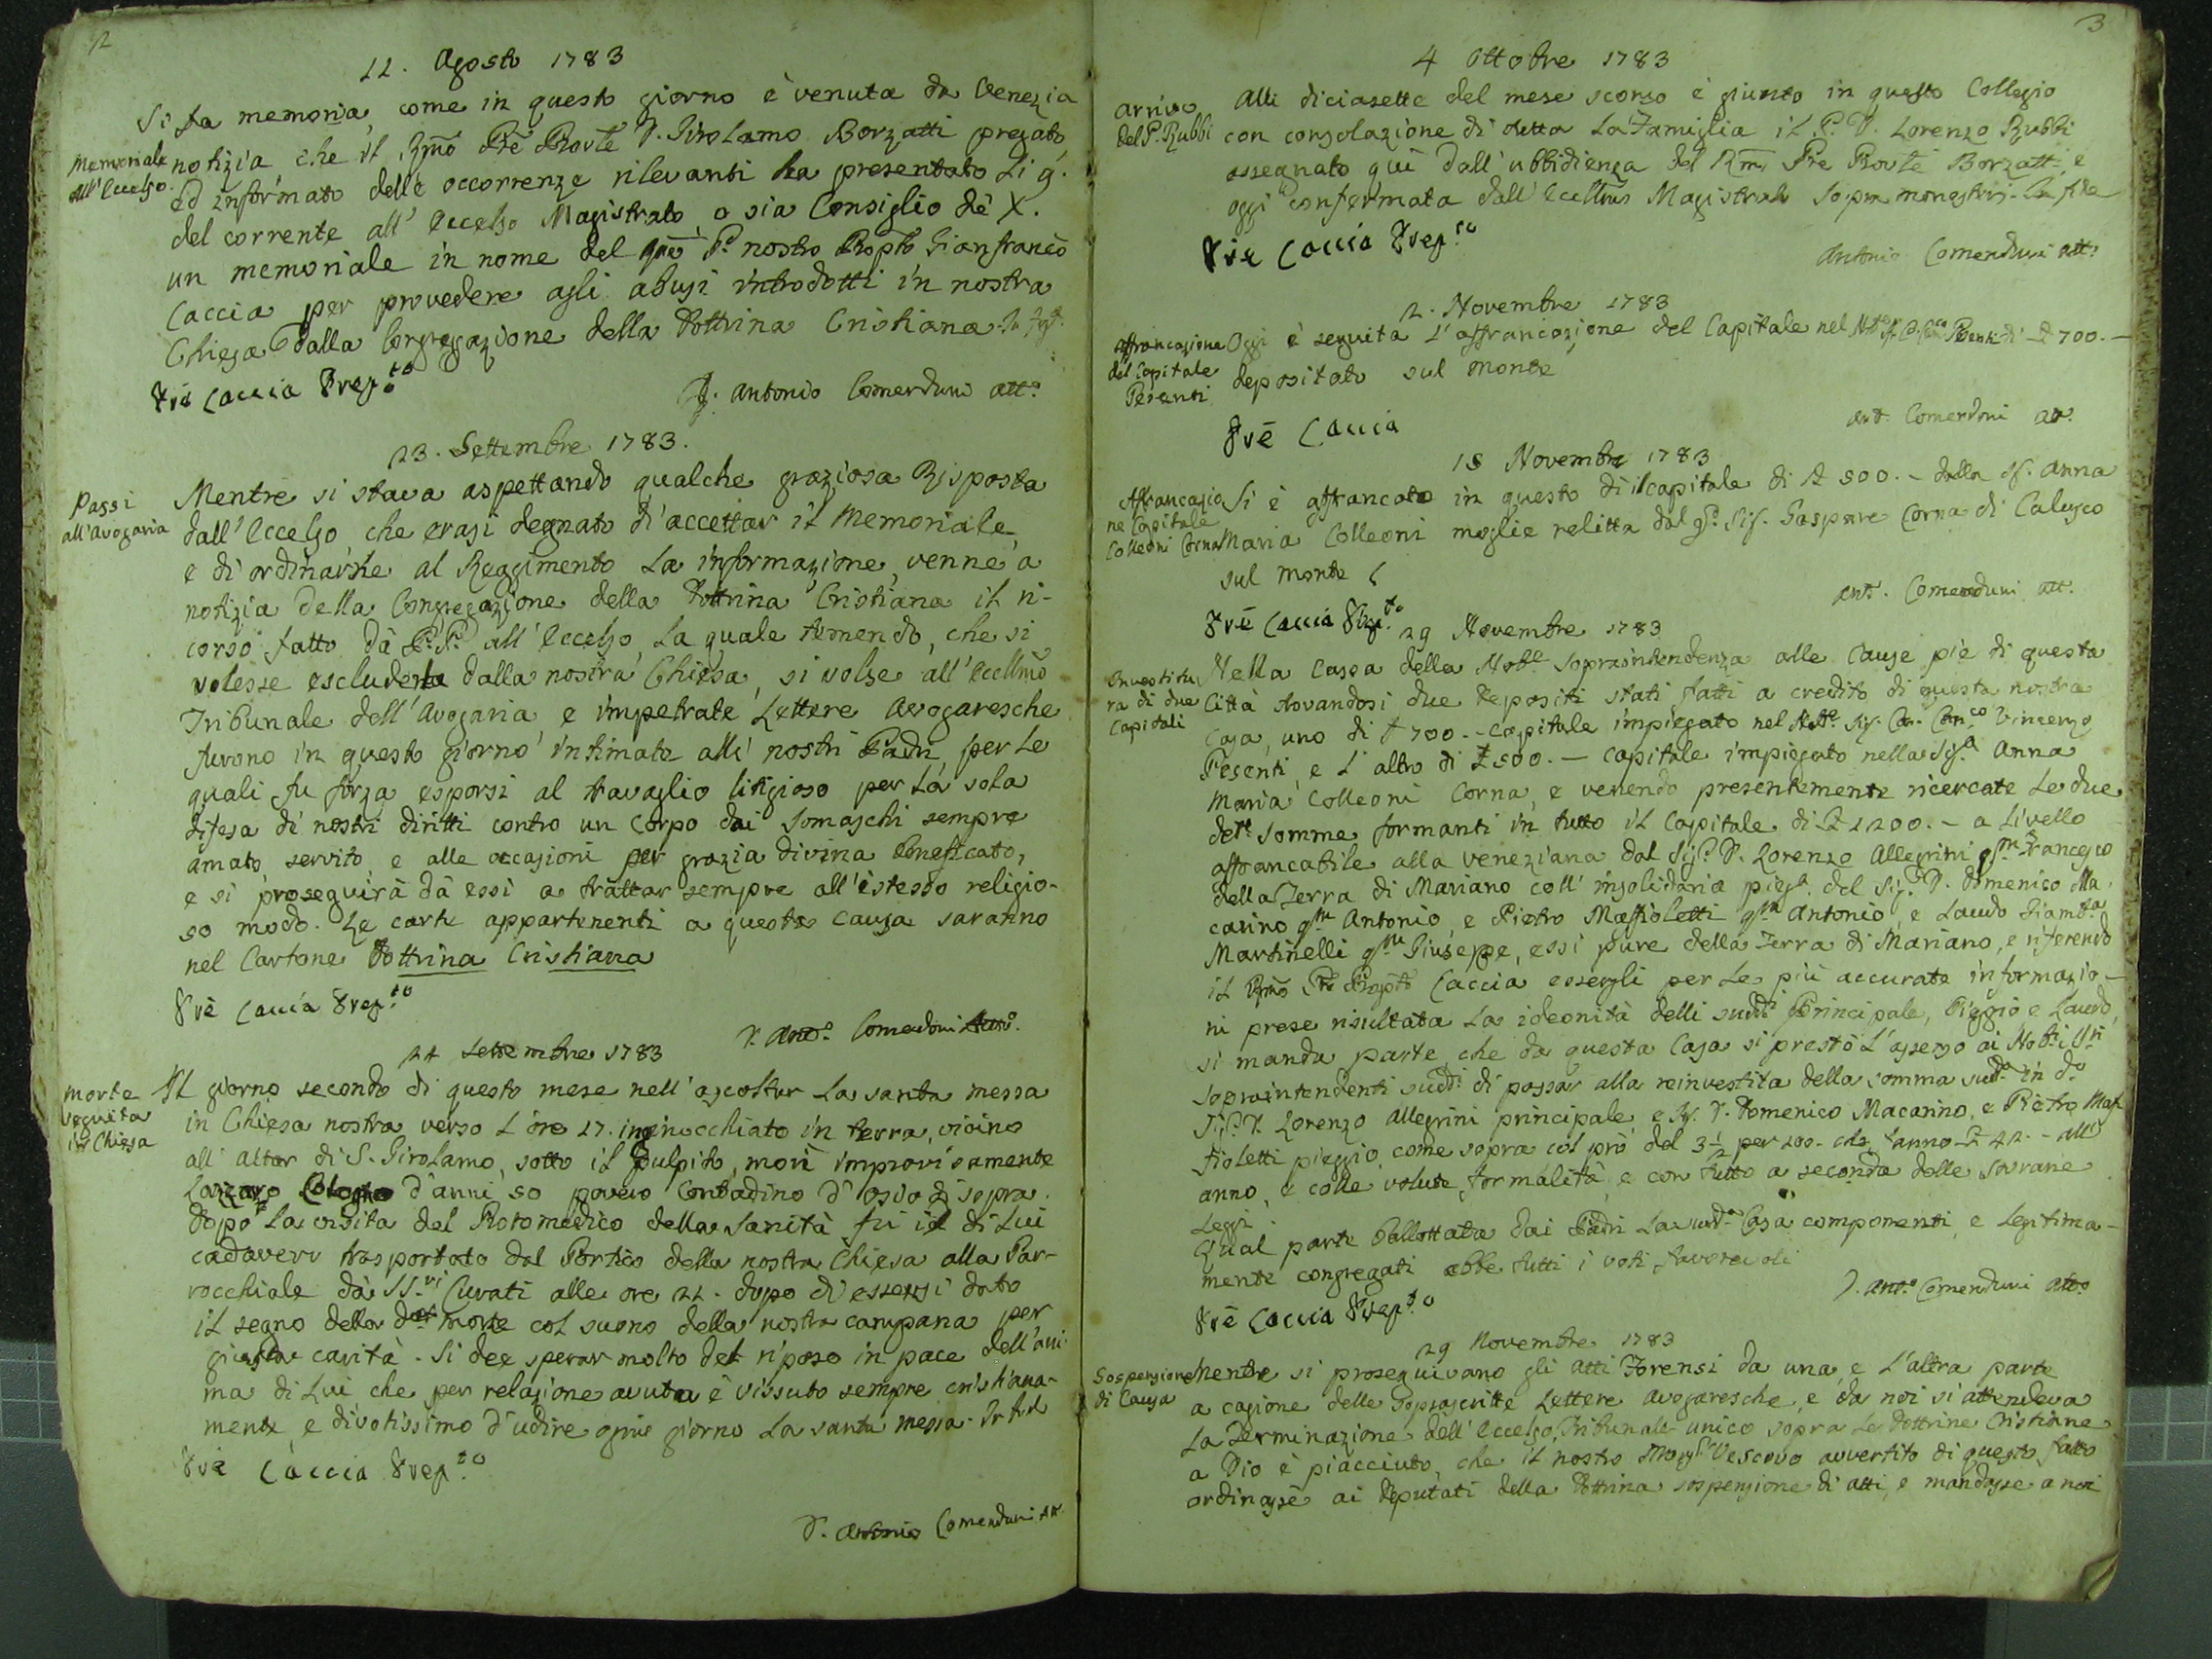 2
11. Agosto 1783
Si fa memoria, come in questo giorno è venuta da Venezia
Memoriale
all'Eccelso.
notizia, che il Rmo Pre Provle D. Girolamo Borzatti pregato,
ed informato delle occorrenze rilevanti ha presentato li 9.
del corrente all' Eccelso Magistrato, o sia Consiglio de' X.
un memoriale in nome del P. nostro Propto Gianfranco
Caccia per provedere agli abusi introdotti in nostra
Chiesa dalla Congregazione della Dottrina Cristiana. In fede
Gio. Caccia Prep.to
D. Antonio Comenduni att.o
23. Settembre 1783.
Passi
all'Avogaria
Mentre si stava aspettando qualche graziosa Risposta
dall'Eccelso che erasi degnato di accettar il Memoriale,
e di ordinarne al Reggimento la informazione, venne a
notizia della Congregazione della Dottrina Cristiana il ri-
corso fatto dà P.P. all'Eccelso, la quale temendo, che si
volesse escluderla dalla nostra Chiesa, si volse all'Eccellmo
Tribunale dell'Avogaria, e impetrate Lettere Avogaresche
furono in questo giorno intimate alli nostri Padri, per le
quali fu forza esporsi al travaglio litigioso per la sola
difesa di nostri diritti contro un Corpo dai Somaschi sempre
amato, servito, e alle occasioni per grazia divina beneficato,
e si proseguirà dà essi a trattar sempre all'istesso religio-
so modo. Le carte appartenenti a questa causa saranno
nel Cartone Dottrina Cristiana
Gio. Caccia Prep.to
D. Ant.o Comenduni Att.o
24 Settembre 1783
morte
seguita
in Chiesa
Il giorno secondo di questo mese nell'ascoltar la santa messa
in Chiesa nostra verso l'ore 17. inginocchiato in terra, vicino
all'altar di S. Girolamo, sotto il pulpito, morì improvisamente
Lazzaro d'anni 50 povero Contadino d'Osio di sopra.
Dopo la visita del Protomedico della Sanità fu il di lui
cadavere trasportato dal Portico della nostra Chiesa alla Par-
rocchiale dà SS.ri Curati alle ore 22. dopo di essersi dato
il segno della morte col suono della nostra campana per
giusta carità. Si dee sperar molto del riposo in pace dell'ani-
ma di lui che per relazione avuta è vissuto sempre cristiana-
mente, e divotissimo d'udire ogni giorno la santa messa. In fede
Gio. Caccia Prep.to
D. Antonio Comenduni Att.
3
4 Ottobre 1783
Arrivo
del P. Rubbi
Alli diciasette del mese scorso è giunto in questo Collegio
con consolazione di tutta la Famiglia il P. D. Lorenzo Rubbi
assegnato quì dall'ubbidienza del Rmo Pre Provle Borzatti, e
oggi confermata dall'Eccellmo Magistrato sopra monasterj. In fede
Gio. Caccia Prep.to
Antonio Comenduni att.o
2. Novembre 1783
Affrancazione
del Capitale
Pesenti
Oggi è seguita l'affrancazione del Capitale nel Pesenti di 700.-
depositato sul Monte
Gio. Caccia
Ant. Comenduni att.
18 Novembre 1783
Affrancazio
ne Capitale
Colleoni Corna
Si è affrancato in questo dì il capitale di 500.- dalla Sig. Anna
Maria Colleoni moglie relitta dal Sig. Gaspare Corna di Calusco
sul Monte
Ant. Comenduni att.
Gio. Caccia Prep.to
29 Novembre 1783
Investitu
ra di due
Capitali
Nella Cassa della Nob.e Sopraintendenza alle Cause pie di questa
Città trovandosi due Depositi stati fatti a credito di questa nostra
Casa, uno di 700.- capitale impiegato nel Nob. Sig. Vincenzo
Pesenti, e l'altro di 500.- capitale impiegato nella Sig.a Anna
Maria Colleoni Corna, e venendo presentemente ricercate le due
dette somme formanti in tutto il Capitale di 1200.- a livello
affrancabile alla veneziana dal Sig. D. Lorenzo Allegrini qm Francesco
della Terra di Mariano coll'insolidaria del Sig. D. Domenico Ma-
carino qm Antonio, e Pietro Maffioletti qm Antonio, e Laudo Giambta
Martinelli qm Giuseppe, essi pure della Terra di Mariano, e riferendo
il Rmo Pre Propto Caccia essergli per le più accurate informazio-
ni prese risultata la idoneità delli sudd.i Principale, Pieggio e Laudo,
si manda parte, che da questa Casa si prestò l'assenso ai Nob.i
Soprintendenti sudd.i di passar alla reinvestita della somma sud.a in d.o
Sig. D. Lorenzo Allegrini principale, e Sig. D. Domenico Macarino, e Pietro Maf-
fioletti pieggio, come sopra col prò del 3½ per 100. che fanno 42.- all'
anno, e colle volute formalità, e con tutto a seconda delle Sovrane
Leggi.
Qual parte ballottata dai Padri la sud.a Casa componenti, e legitima-
mente congregati ebbe tutti i voti favorevoli
D. Ant.o Comenduni att.o
Gio. Caccia Prep.to
29 Novembre 1783
Sospensione
di Causa
Mentre si proseguivano gli atti Forensi da una, e l'altra parte
a cagione delle soprascritte Lettere avogaresche, e da noi si attendeva
la Terminazione dell'Eccelso Tribunale unico sopra le Dottrine Cristiane
a Dio è piacciuto, che il nostro Monsr Vescovo avvertito di questo fatto
ordinasse ai Deputati della Dottrina sospensione di atti, e mandasse a noi